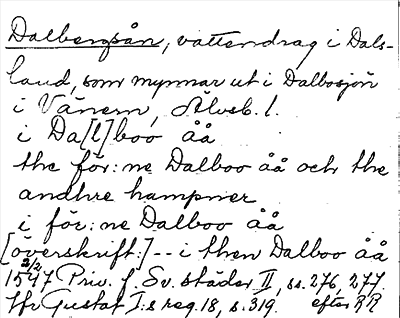 Dalbergsån, vattendrag i Dals-
land, som mynnar ut i Dalbosjön
i Vänern, Älvsb. l.
i Da[l]boo åå
the för:ne Dalboo åå och the
andhre hampner
i för:ne Dalboo åå
[överskrift:] -- i then Dalboo åå
2/2
1547 Priv. f. Sv. städer II, ss. 276, 277.
Jfr Gustaf I:s reg. 18, s. 319. efter RR